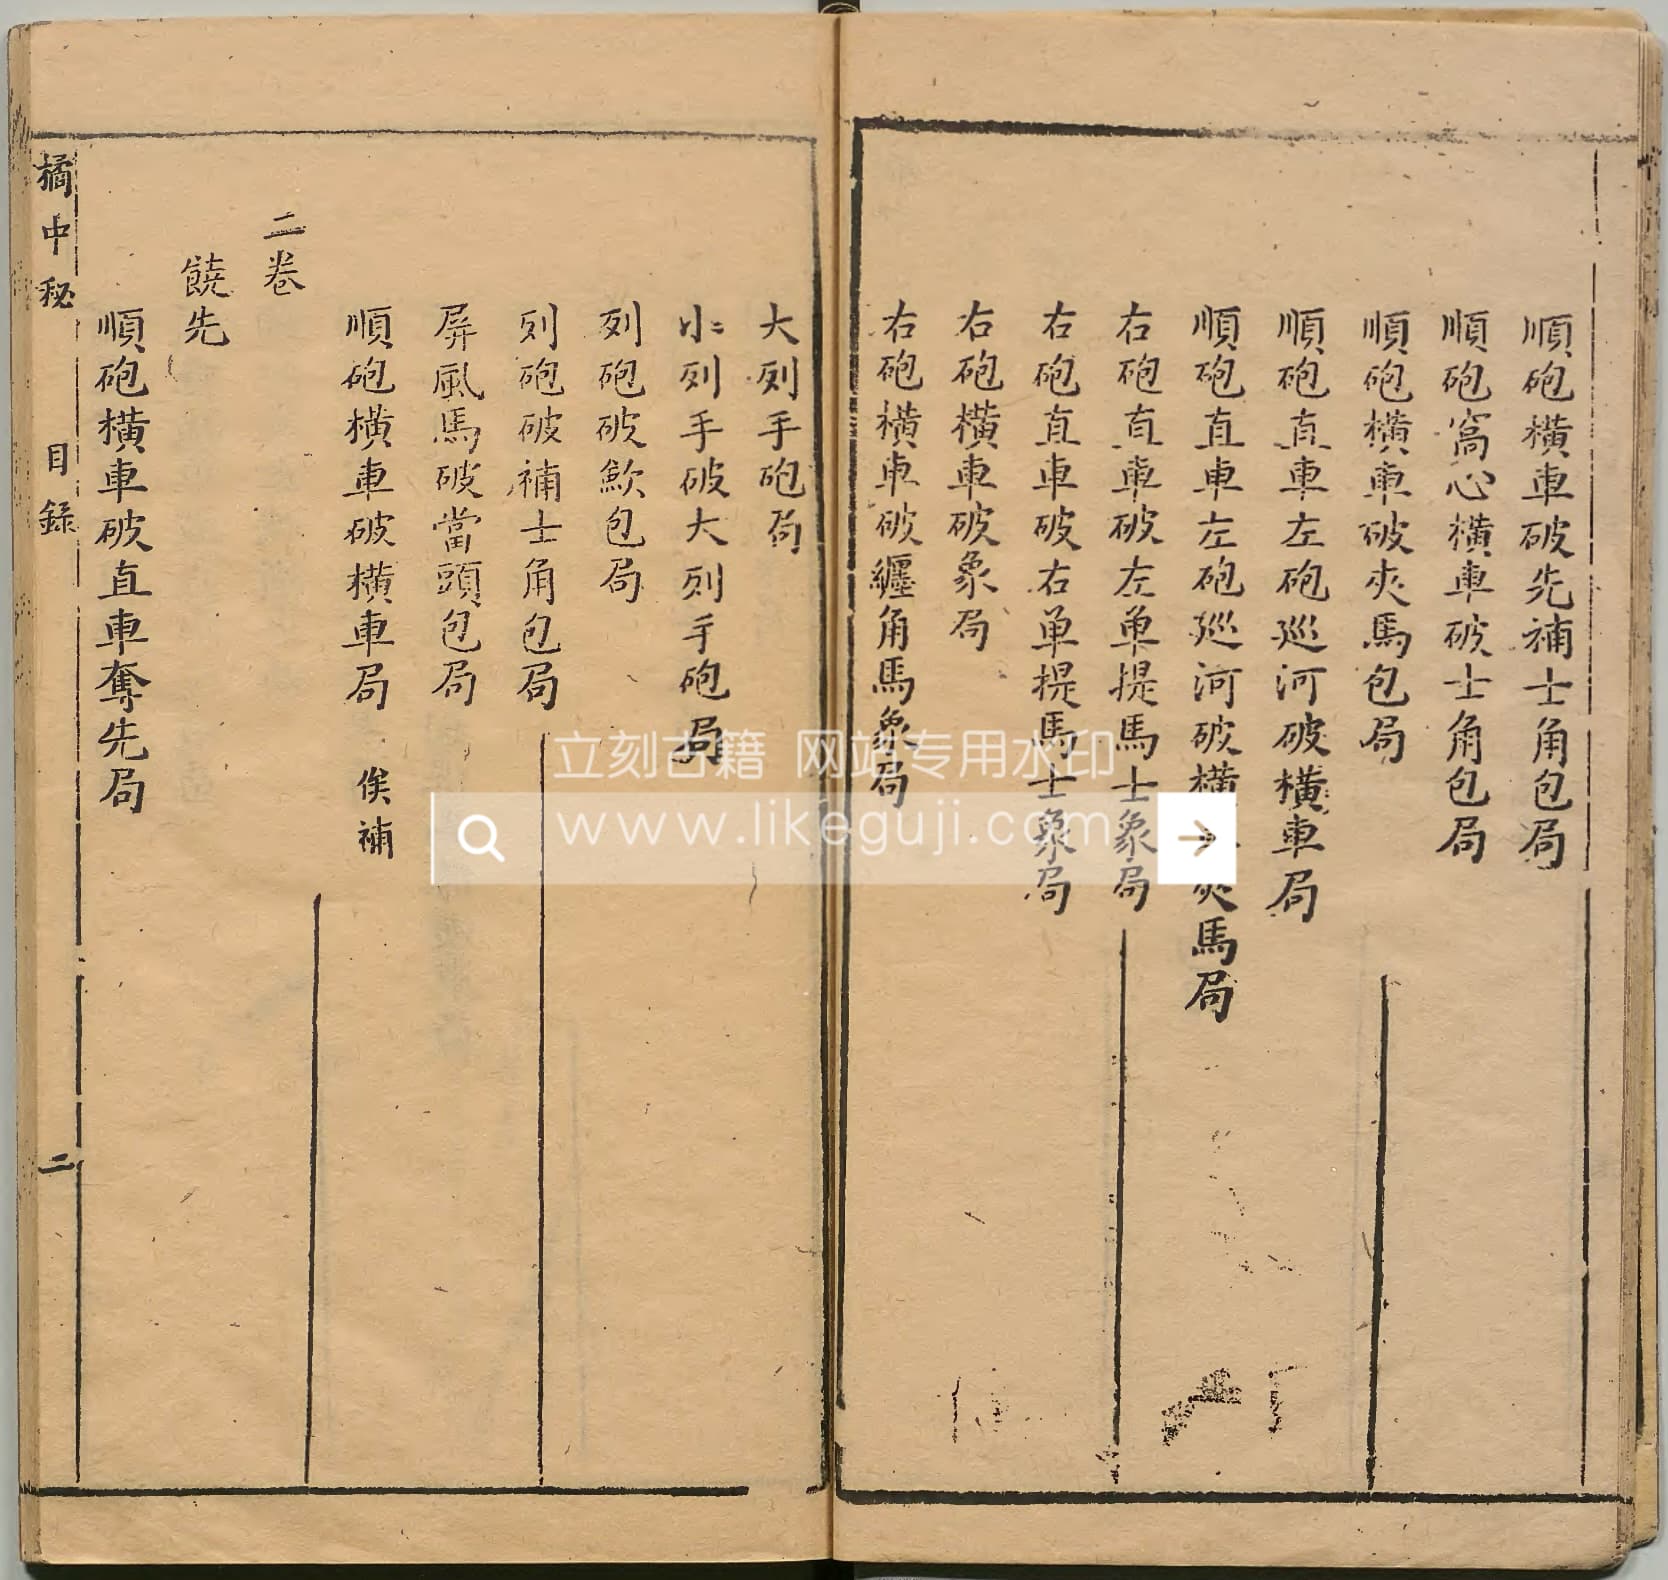 順砲橫車破先補士角包局
順砲窩心橫車破士角包局
順砲橫車破夾馬包局
順砲直車左砲巡河破橫車局
順砲直車左砲巡河破橫夾馬局
右砲直車破左单提馬士象局
右砲直車破右单提馬士象局
右砲橫車破象局
右砲橫車破纒角馬象局
大列手砲局
小列手破大列手砲局
列砲破歉包局
列砲破補士角包局
屏風馬破當頭包局
順砲橫車破橫車局 俟補
二卷
饒先
順砲橫車破直車奪先局
橘中秘 目錄 二
立刻古籍 网站专用水印
www.likeguji.com